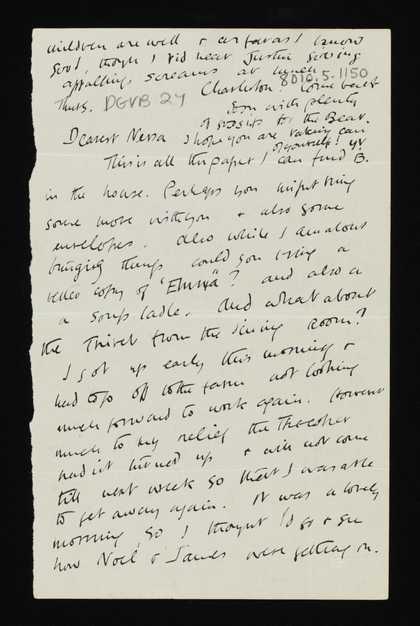 children are well & as far as I know
good, though I did hear Justin giving
appalling screams at lunch
8010.5.1150
Charleston. Come back
Thurs. DGVB 27
soon with plenty
of gossip for the Bear.
I hope you are taking care
of yourself! yr.
B.
Dearest Nessa
This is all the paper I can find
in the house. Perhaps you might bring
some more with you & also some
envelopes. Also while I am about
bringing things could you bring a
copy of "Emma"? and also a
a soup ladle. And what about
the Trivet from the dining room?
I got up early this morning &
had to go off to the farm not looking
much forward to work again. However
much to my relief the Thresher
hadn't turned up & will not come
till next week so that I was able
to get away again. It was a lovely
morning, so I thought I'd go & see
how Noel & James were getting on.